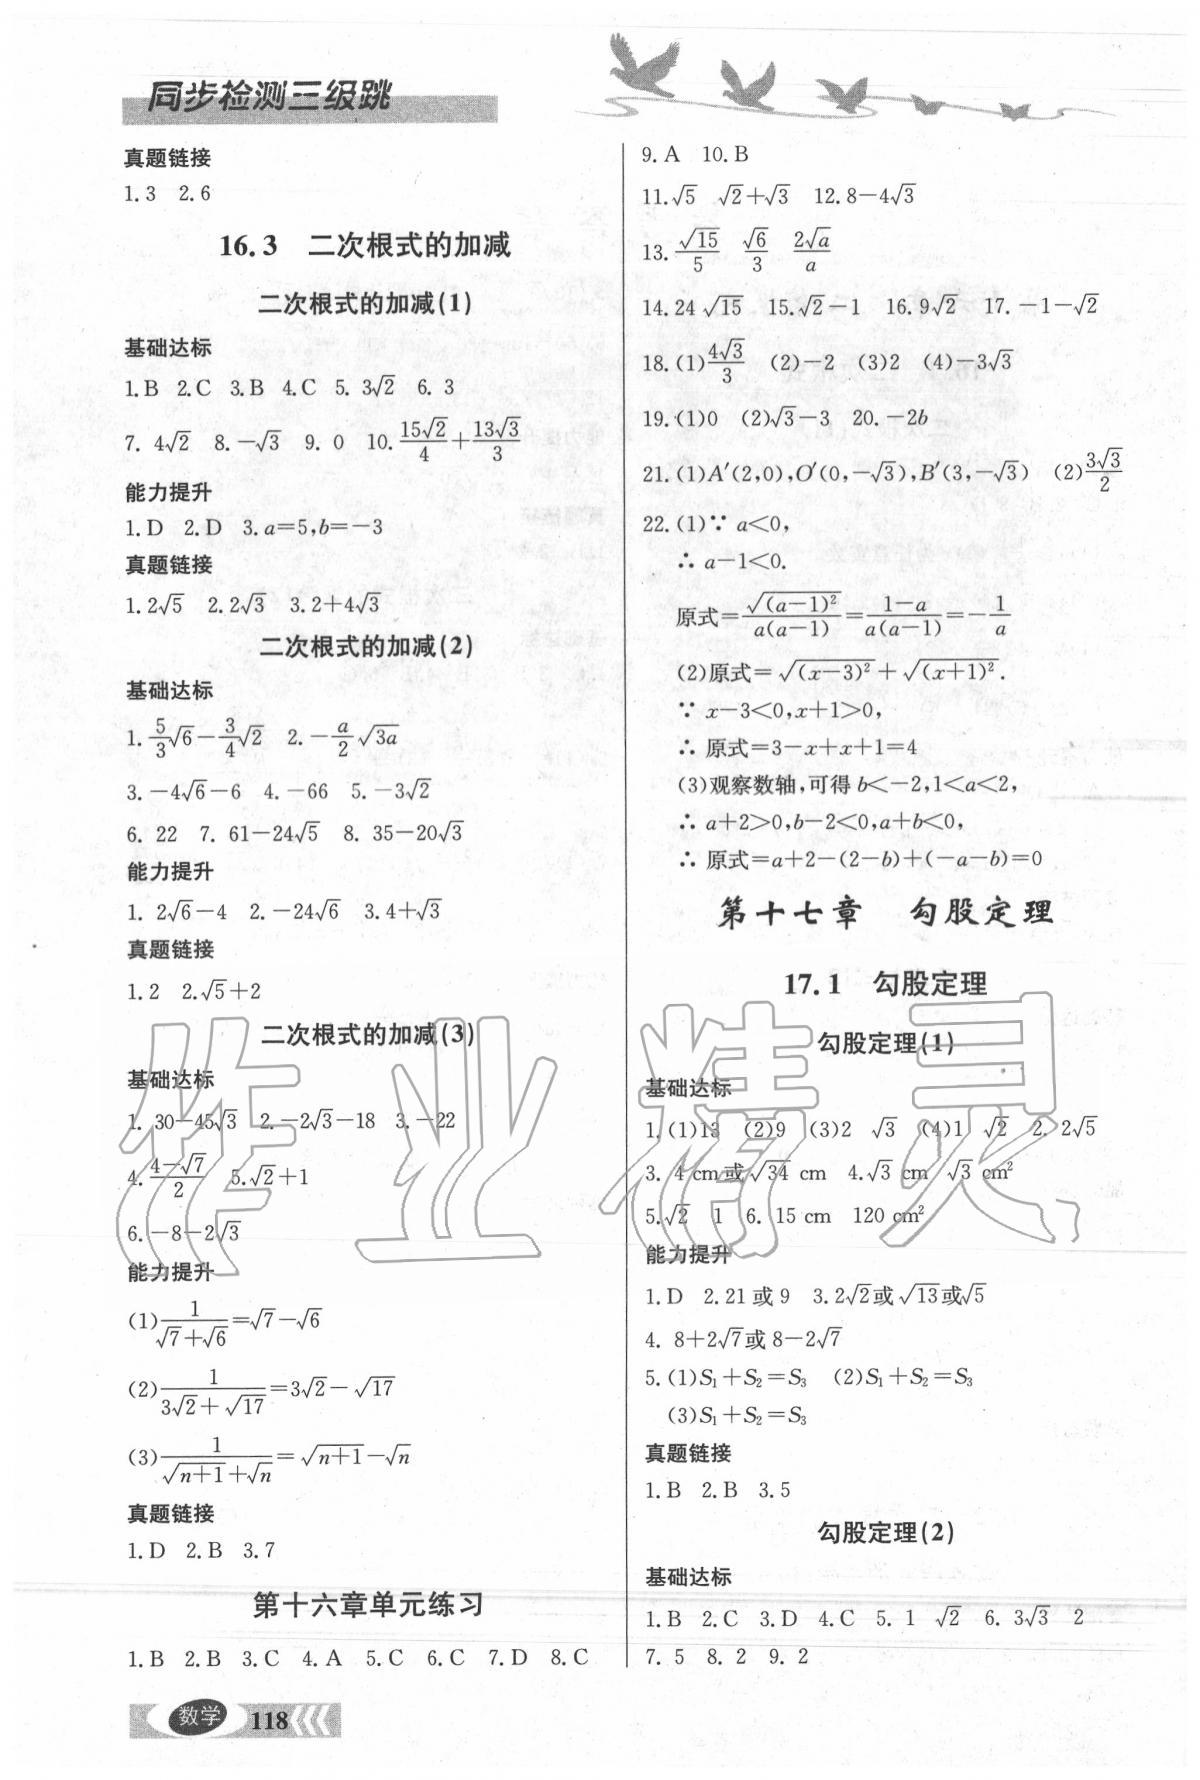 同步检测三级跳
真题链接
1.3 2.6
16.3 二次根式的加减
二次根式的加减(1)
基础达标
1.B 2.C 3.B 4.C 5. 3√2 6. 3
7. 4√2 8. -√3 9. 0 10. 15√2/4+13√3/3
能力提升
1.D 2.D 3.a=5,b=-3
真题链接
1.2√5 2.2√3 3.2+4√3
二次根式的加减(2)
基础达标
1. 5/3√6-3/4√2 2. -a/2√3a
3. -4√6-6 4. -66 5. -3√2
6. 22 7. 61-24√5 8. 35-20√3
能力提升
1. 2√6-4 2. -24√6 3.4+√3
真题链接
1.2 2.√5+2
二次根式的加减(3)
基础达标
1. 30-45√3 2. -2√3-18 3. -22
4. (4-√7)/2 5.√2+1
6. -8-2√3
能力提升
(1) 1/(√7+√6)=√7-√6
(2) 1/(3√2+√17)=3√2-√17
(3) 1/(√(n+1)+√n)=√(n+1)-√n
真题链接
1.D 2.B 3.7
第十六章单元练习
1.B 2.B 3.C 4.A 5.C 6.C 7.D 8.C
9.A 10.B
11.√5 √2+√3 12.8-4√3
13. √15/5 √6/3 2√a/a
14.24 √15 15.√2-1 16.9√2 17. -1-√2
18.(1)4√3/3 (2)-2 (3)2 (4)-3√3
19.(1)0 (2)√3-3 20. -2b
21.(1)A′(2,0),O′(0,-√3),B′(3,-√3) (2)3√3/2
22.(1)∵ a<0,
∴ a-1<0.
原式=√(a-1)²/a(a-1)=(1-a)/a(a-1)=-1/a
(2)原式=√(x-3)²+√(x+1)².
∵ x-3<0,x+1>0,
∴ 原式=3-x+x+1=4
(3)观察数轴,可得 b<-2,1<a<2,
∴ a+2>0,b-2<0,a+b<0,
∴ 原式=a+2-(2-b)+(-a-b)=0
第十七章 勾股定理
17.1 勾股定理
勾股定理(1)
基础达标
1.(1)13 (2)9 (3)2 √3 (4)1 √2 2. 2√5
3. 4 cm或√34 cm 4.√3 cm √3 cm²
5.√2 1 6. 15 cm 120 cm²
能力提升
1.D 2.21或9 3.2√2或√13或√5
4. 8+2√7或8-2√7
5.(1)S₁+S₂=S₃ (2)S₁+S₂=S₃
(3)S₁+S₂=S₃
真题链接
1.B 2.B 3.5
勾股定理(2)
基础达标
1.B 2.C 3.D 4.C 5. 1 √2 6. 3√3 2
7.5 8.2 9.2
作业精灵
数学 118